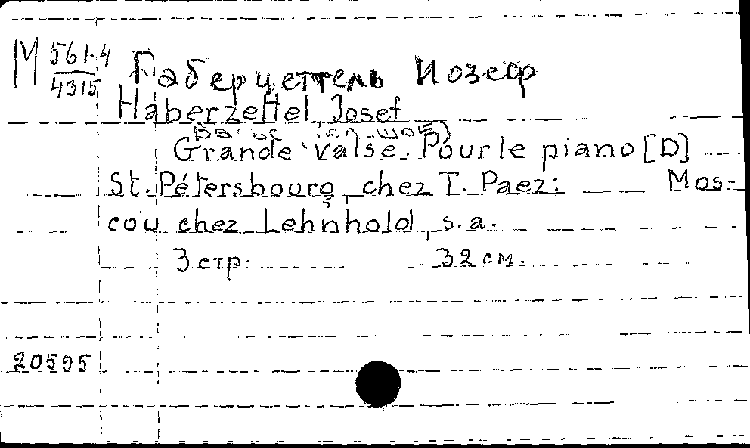 М 561-4
4315
Габерцеттель Иозеф
Haberzettel, Josef
Grande valse. Pour le piano [D]
St. Pétersbourg, chez T. Paez; Mos-
cou chez Lehnhold, s.a.
3 стр. 32 см.
20595